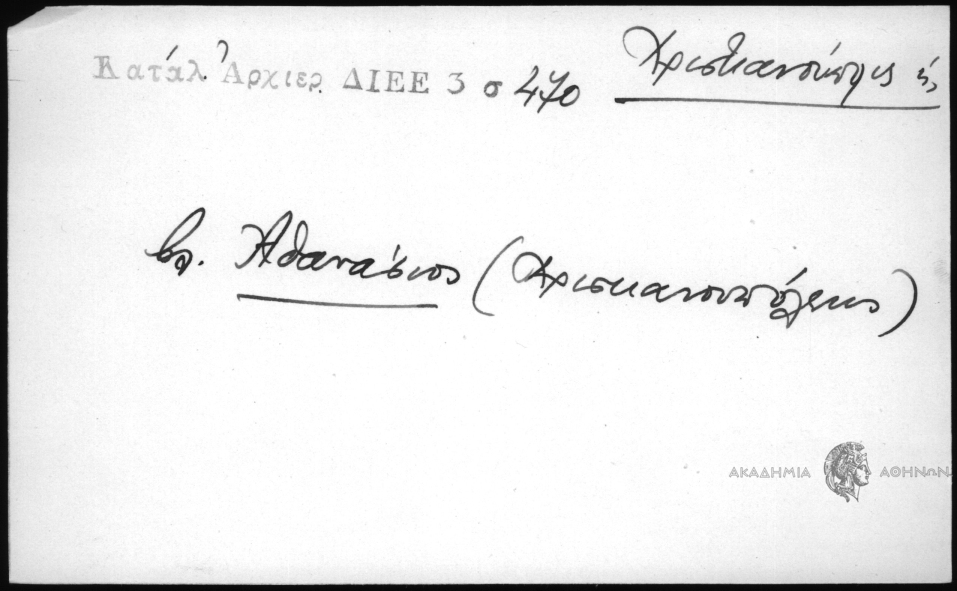 Κατάλ. Ἀρχιερ. ΔΙΕΕ 3 σ 470 Χριστιανούπολις ἡ
βλ. Ἀθανάσιος (Χριστιανουπόλεως)
ΑΚΑΔΗΜΙΑ ΑΘΗΝΩΝ